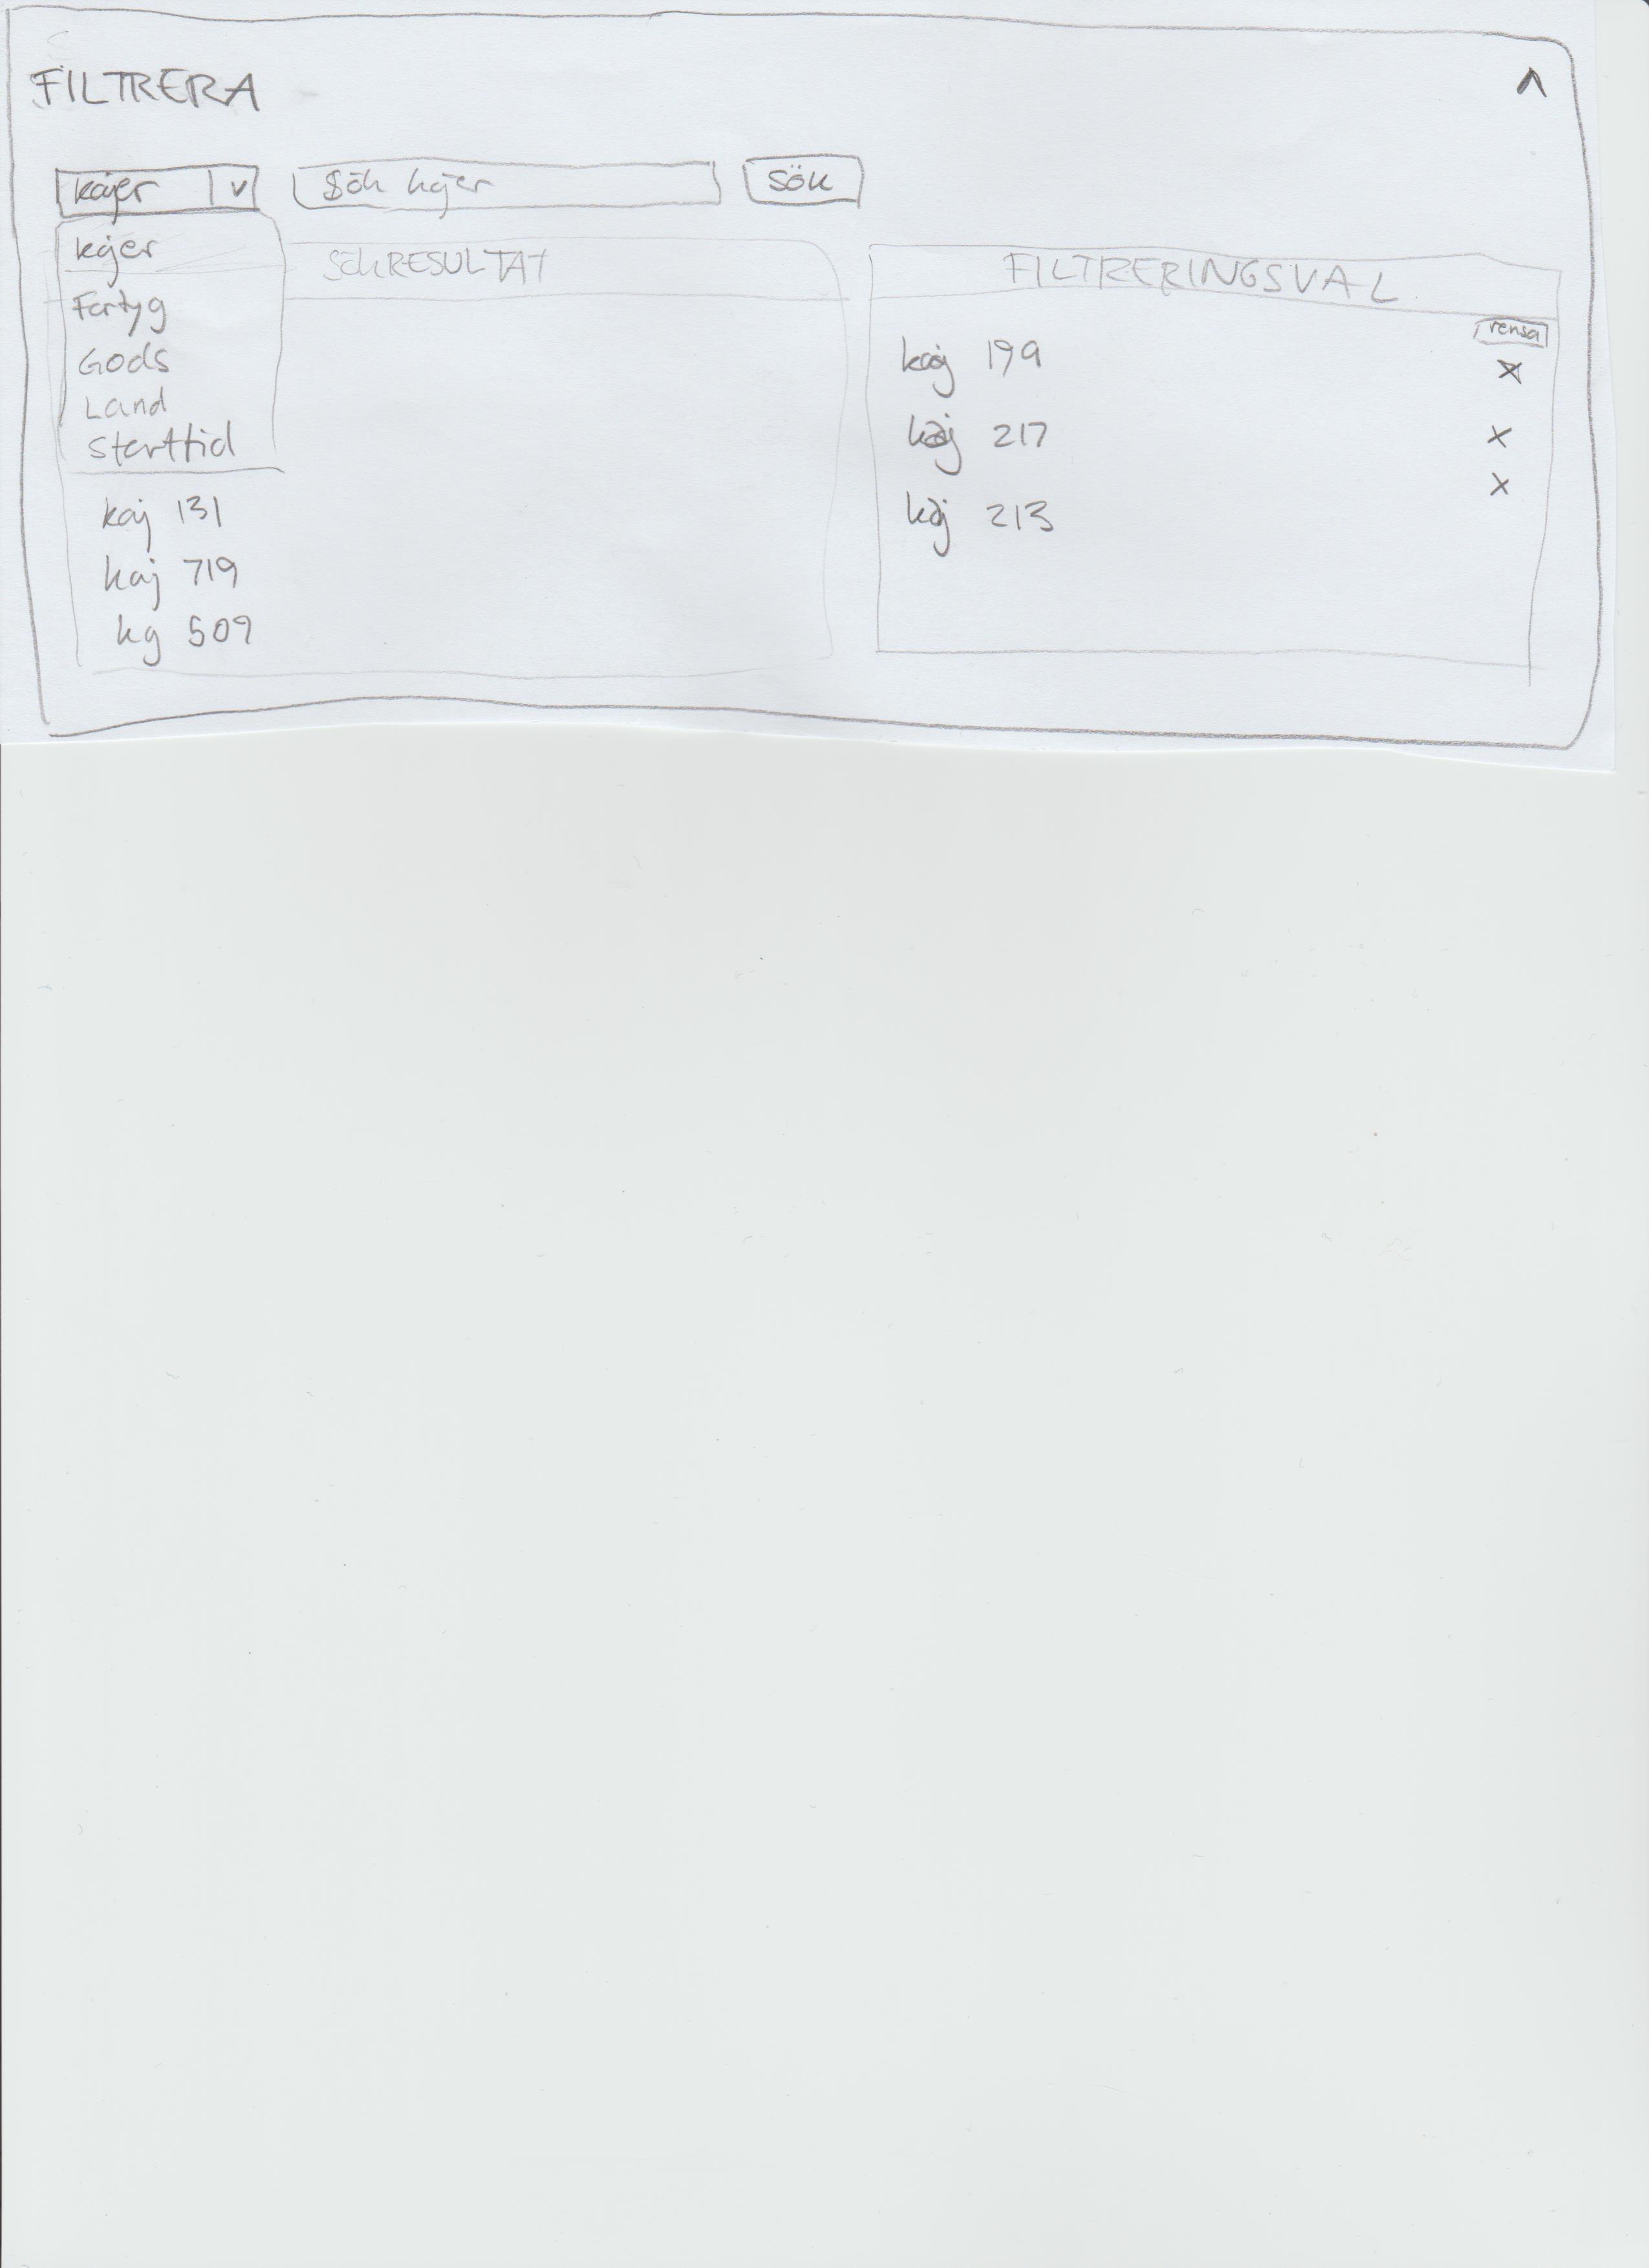 FILTRERA ^
kajer v Sök kajer SÖK
kajer
Fartyg
Gods
Land
Starttid
SÖKRESULTAT
kaj 131
kaj 719
kaj 509
FILTRERINGSVAL
rensa
kaj 199 x
kaj 217 x
kaj 213 x